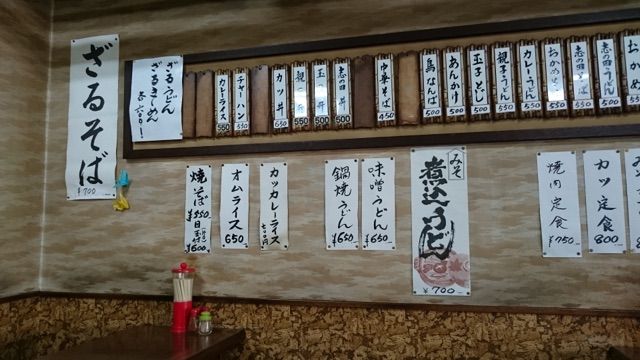 ざるそば
¥700
ざるうどん
ざるきしめん
各600!
カレーライス
550
チャーハン
550
カツ丼
650
親子丼
550
玉丼
500
志の田丼
500
中華そば
450
鳥なんば
500
あんかけ
500
玉子とじ
500
親子うどん
500
カレーうどん
550
おかめそば
550
志の田そば
500
志の田うどん
500
おかめ
焼そば
¥550
目玉付
¥600
オムライス
650
カツカレーライス
鍋焼うどん
¥650
味噌うどん
¥650
みそ
煮込うどん
¥700
焼肉定食
¥750
カツ定食
800